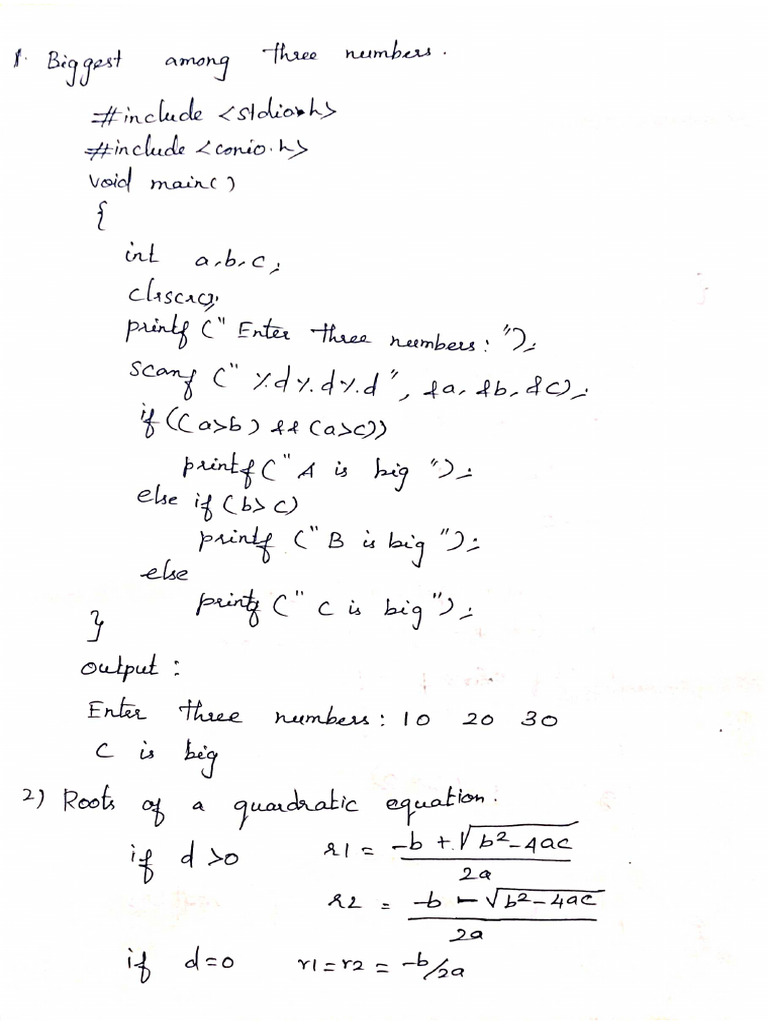 1. Biggest among three numbers.
#include <stdio.h>
#include <conio.h>
void main()
{
int a,b,c;
clrscr();
printf (" Enter three numbers: ");
scanf (" %d%d%d", &a, &b, &c);
if ((a>b) && (a>c))
printf (" A is big ");
else if (b>c)
printf (" B is big ");
else
printf (" C is big");
}
output :
Enter three numbers: 10 20 30
C is big
2) Roots of a quardratic equation.
if d >0 r1 = -b + √b²-4ac / 2a
r2 = -b - √b²-4ac / 2a
if d=0 r1=r2 = -b/2a